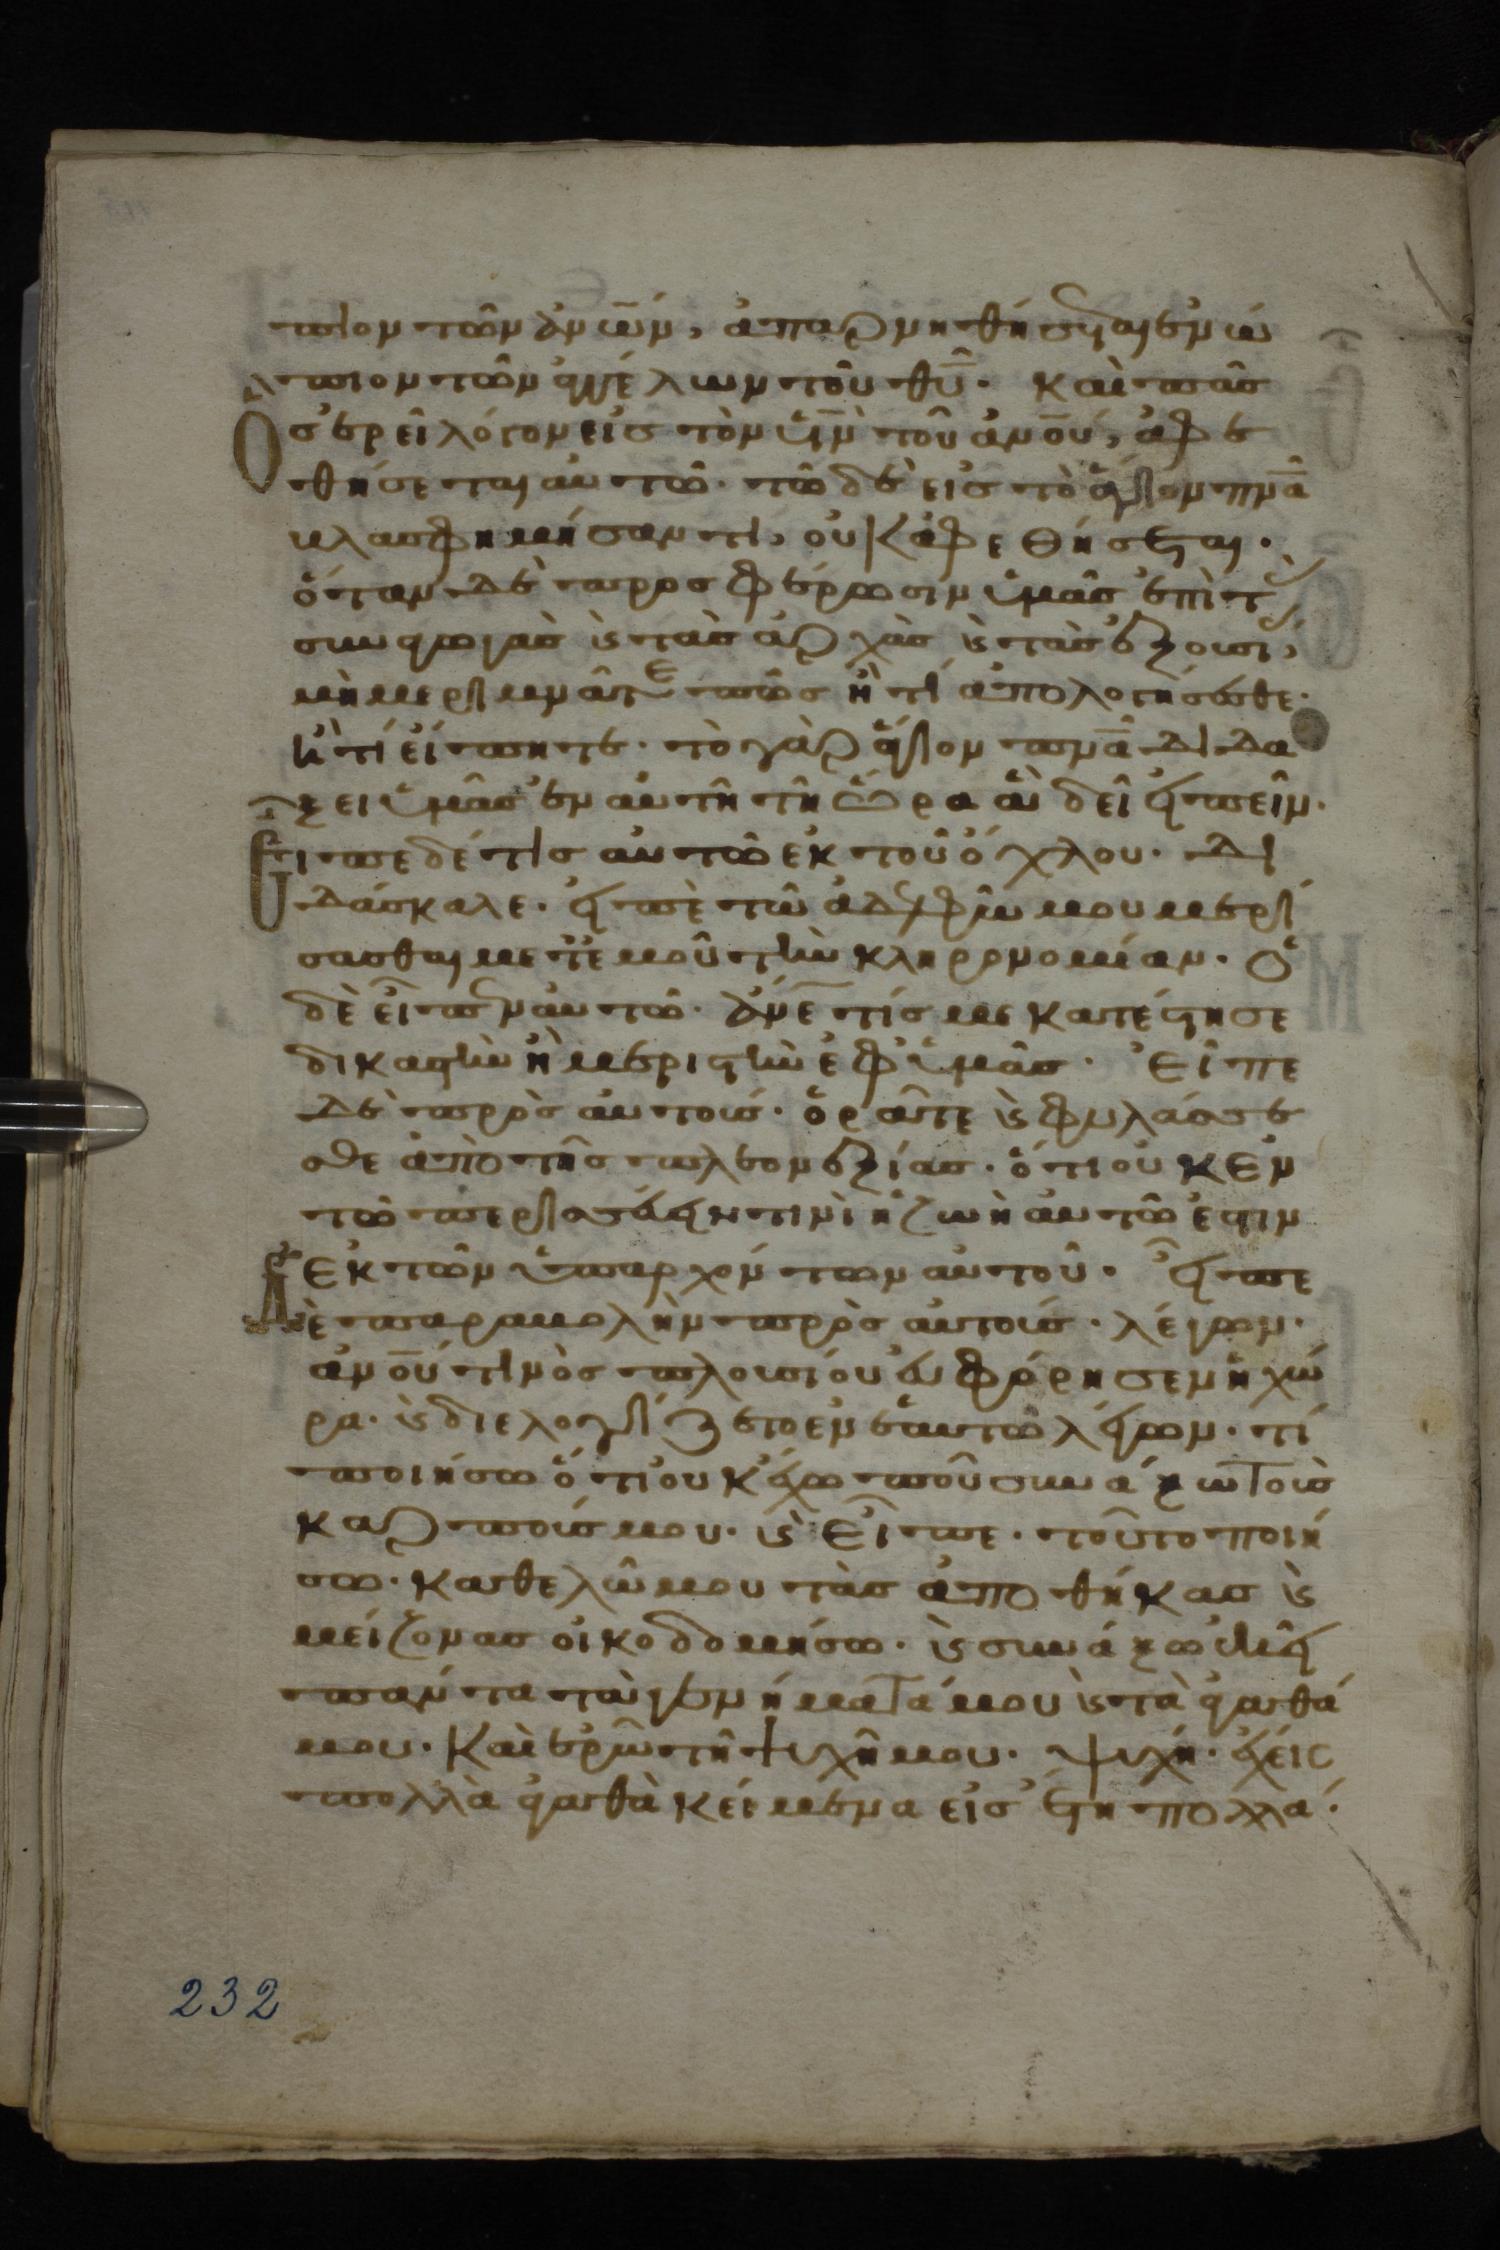 πιον τῶν ἀνων, ἀπαρνηθήσεται ἐνώ
πιον τῶν ἀγγέλων τοῦ θυ. Καὶ πᾶς
Ὃς ἐρεῖ λόγον εἰς τὸν υἱν τοῦ ἀνου, ἀφε
θήσεται αὐτῶ. τῶ δὲ εἰς τὸ ἅγιον πνα
βλασφημήσαντι, οὐκ ἀφεθήσεται.
ὅταν δὲ προσφέρωσιν ὑμᾶς ἐπὶ τὰς
συναγωγὰς κ τὰς ἀρχὰς κ τὰς ἐξουσί,
μὴ μεριμνᾶτε πῶς ἢ τί ἀπολογήσησθε.
ἢ τί εἴπητε. τὸ γὰρ ἅγιον πνα διδά
ξει ὑμᾶς ἐν αὐτῆ τῆ ὥρα ἃ δεῖ εἰπεῖν.
Εἶπε δέ τις αὐτῶ ἐκ τοῦ ὄχλου. Δι
δάσκαλε. εἰπὲ τῶ ἀδελφῶ μου μερί
σασθαι μετ' ἐμοῦ τὴν κληρονομίαν. ὁ
δὲ εἶπεν αὐτῶ. ἄνε τίς με κατέστησε
δικαστὴν ἢ μεριστὴν ἐφ' ὑμᾶς. Εἶπε
δὲ πρὸς αὐτούς. ὁρᾶτε κ φυλάσσε
σθε ἀπὸ τῆς πλεονεξίας. ὅτι οὐκ ἐν
τῶ περισσεύειν τινὶ ἡ ζωὴ αὐτῶ ἐστιν
ἐκ τῶν ὑπαρχόντων αὐτοῦ. Εἶπε
Δὲ παραβολὴν πρὸς αὐτούς. λέγων.
ἀνου τινὸς πλουσίου εὐφόρησεν ἡ χώ
ρα. κ διελογίζετο ἐν ἑαυτῶ λέγων. τί
ποιήσω ὅτι οὐκ ἔχω ποῦ συνάξω τοὺς
καρπούς μου. κ εἶπε. τοῦτο ποιή
σω. καθελῶ μου τὰς ἀποθήκας κ
μείζονας οἰκοδομήσω. κ συνάξω ἐκεῖ
πάντα τὰ γενήματά μου κ τὰ ἀγαθά
μου. Καὶ ἐρῶ τῆ ψυχῆ μου. ψυχή. ἔχεις
πολλὰ ἀγαθὰ κείμενα εἰς ἔτη πολλά.
232